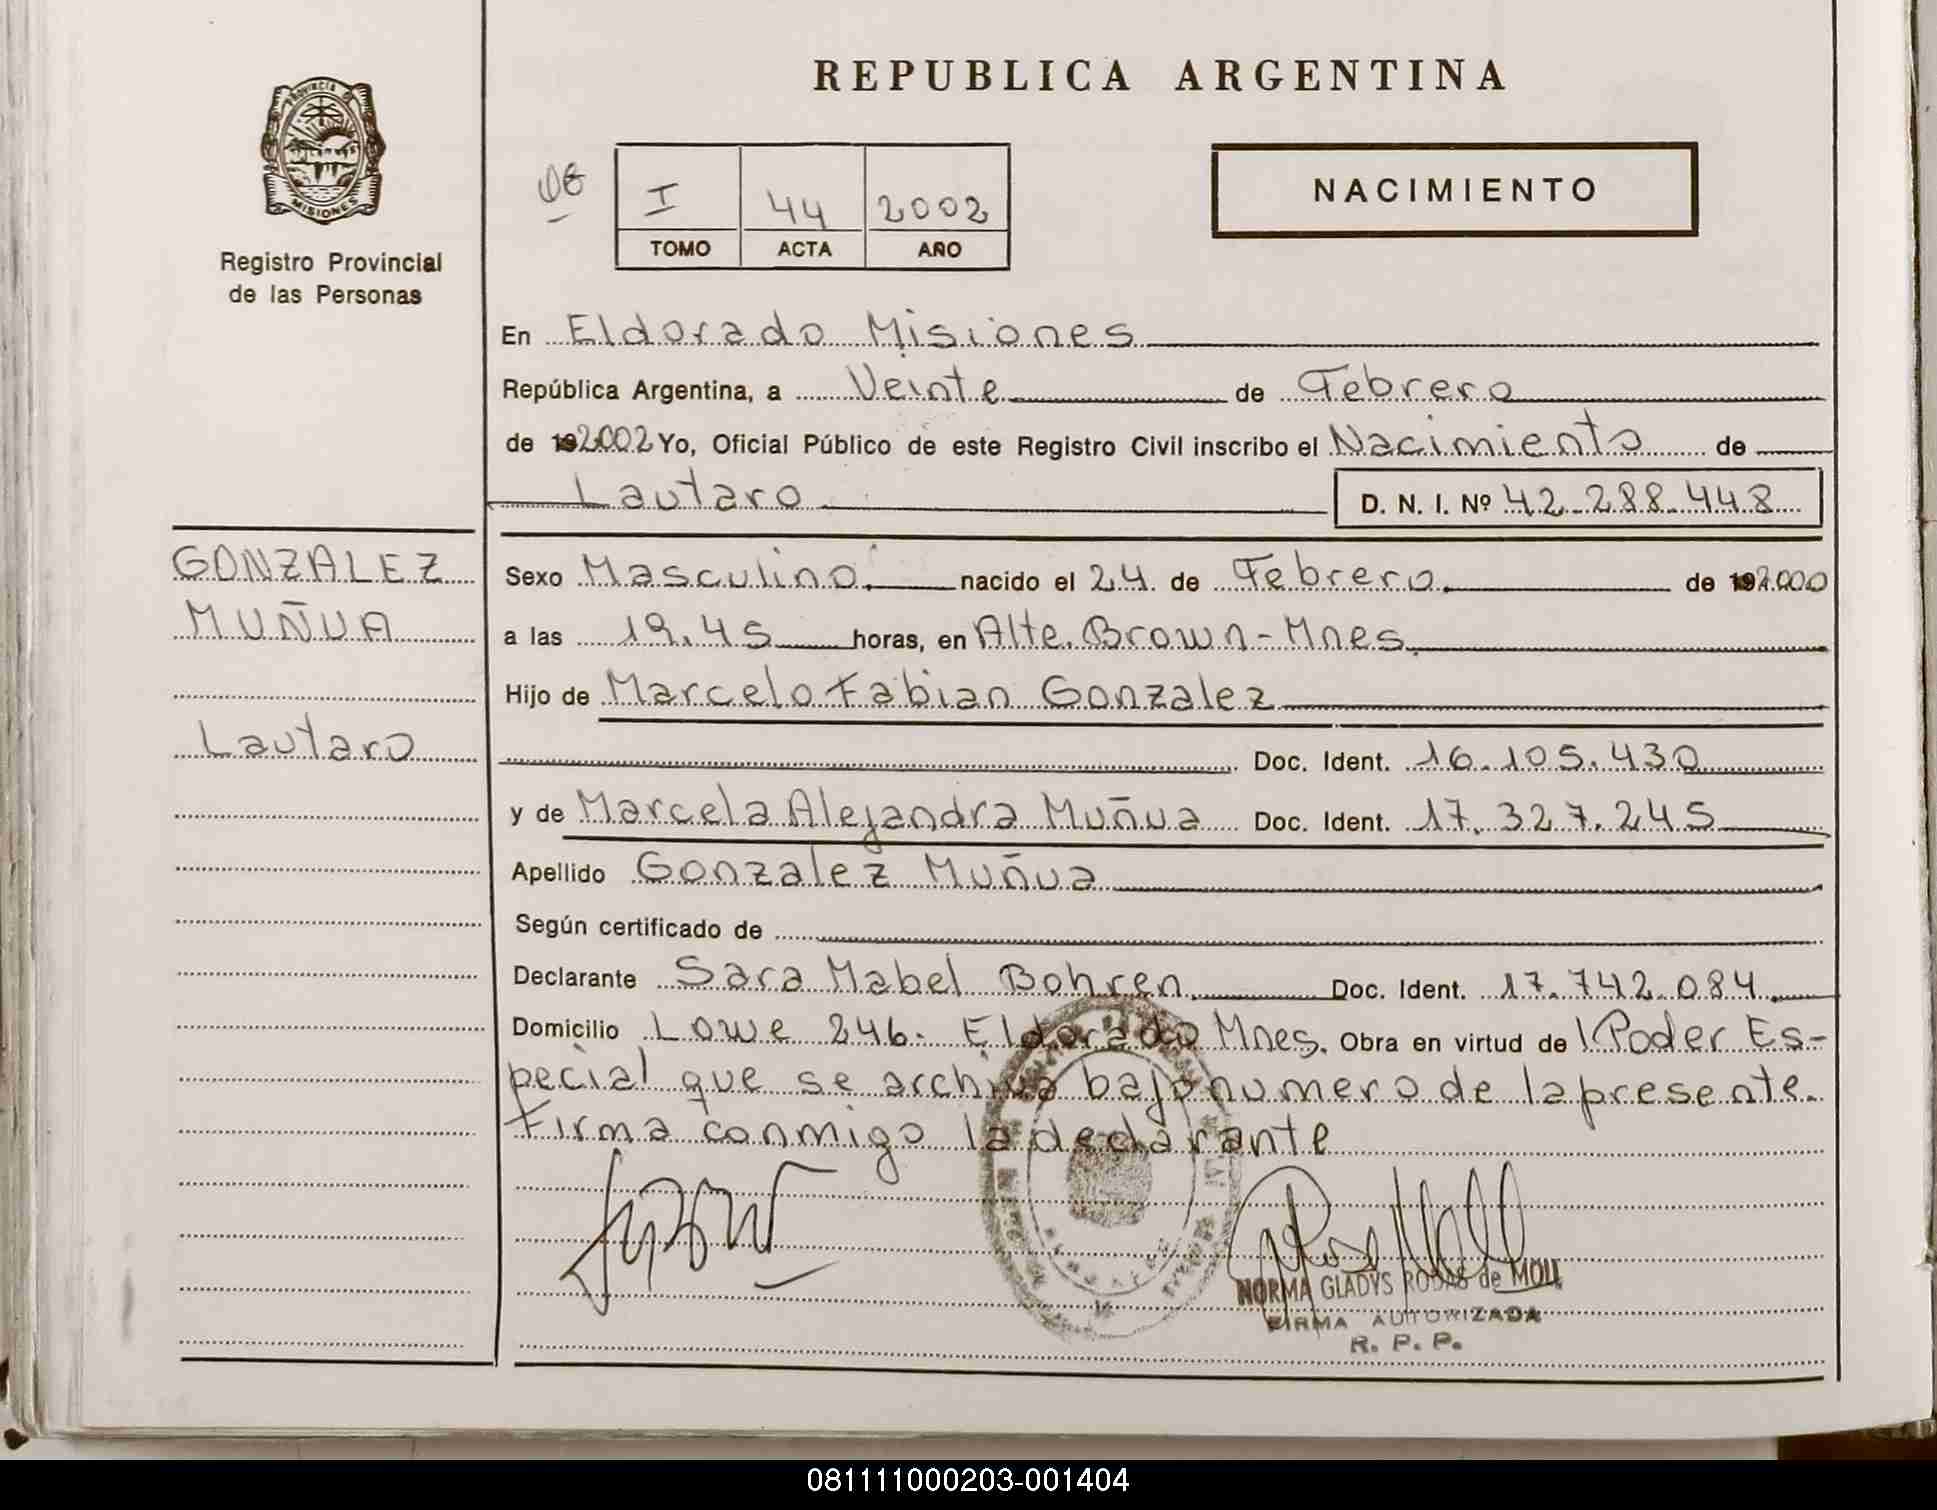 REPUBLICA ARGENTINA
PROVINCIA DE
MISIONES
Registro Provincial
de las Personas
I 44 2002
TOMO ACTA AÑO
NACIMIENTO
En Eldorado Misiones
República Argentina, a Veinte de Febrero
de 192002 Yo, Oficial Público de este Registro Civil inscribo el Nacimiento de
Lautaro D. N. I. Nº 42.288.448
GONZALEZ
MUÑUA
Lautaro
Sexo Masculino. nacido el 24 de Febrero. de 192000
a las 19.45 horas, en Alte. Brown-Mnes.
Hijo de Marcelo Fabian Gonzalez
Doc. Ident. 16.105.430
y de Marcela Alejandra Muñua Doc. Ident. 17.327.245
Apellido Gonzalez Muñua
Según certificado de
Declarante Sara Mabel Bohren. Doc. Ident. 17.742.084.
Domicilio Lowe 246. Eldorado Mnes. Obra en virtud de Poder Es-
pecial que se archiva bajo numero de la presente.
Firma conmigo la declarante
NORMA GLADYS RODAS de MOLL
FIRMA AUTORIZADA
R. P. P.
081111000203-001404